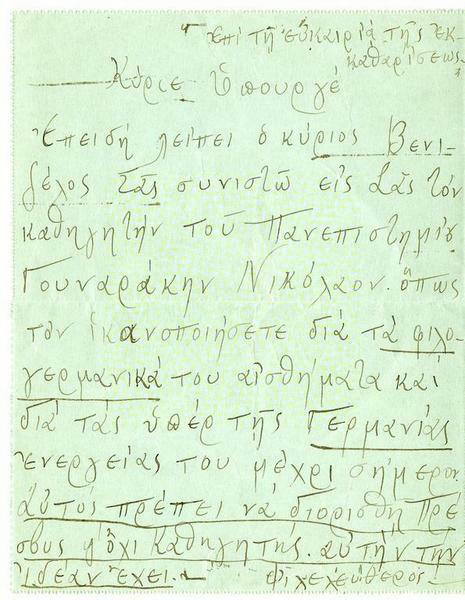 Ἐπὶ τῇ εὐκαιρίᾳ τῆς ἐκ-
καθαρίσεως.
Κύριε Ὑπουργέ
Ἐπειδή λείπει ὁ κύριος Βενι-
ζέλος Σᾶς συνιστῶ εἰς Σᾶς τόν
καθηγητήν τοῦ Πανεπιστημίου
Γουναράκην Νικόλαον. ὅπως
τόν ἱκανοποιήσετε διά τά φιλο-
γερμανικά του αἰσθήματα καί
διά τάς ὑπέρ τῆς Γερμανίας
ἐνεργείας του μέχρι σήμερον.
Αὐτός πρέπει νά διορισθῇ Πρέ
σβυς κ' ὄχι καθηγητης. αὐτήν τήν
Ἰδέαν ἔχει.